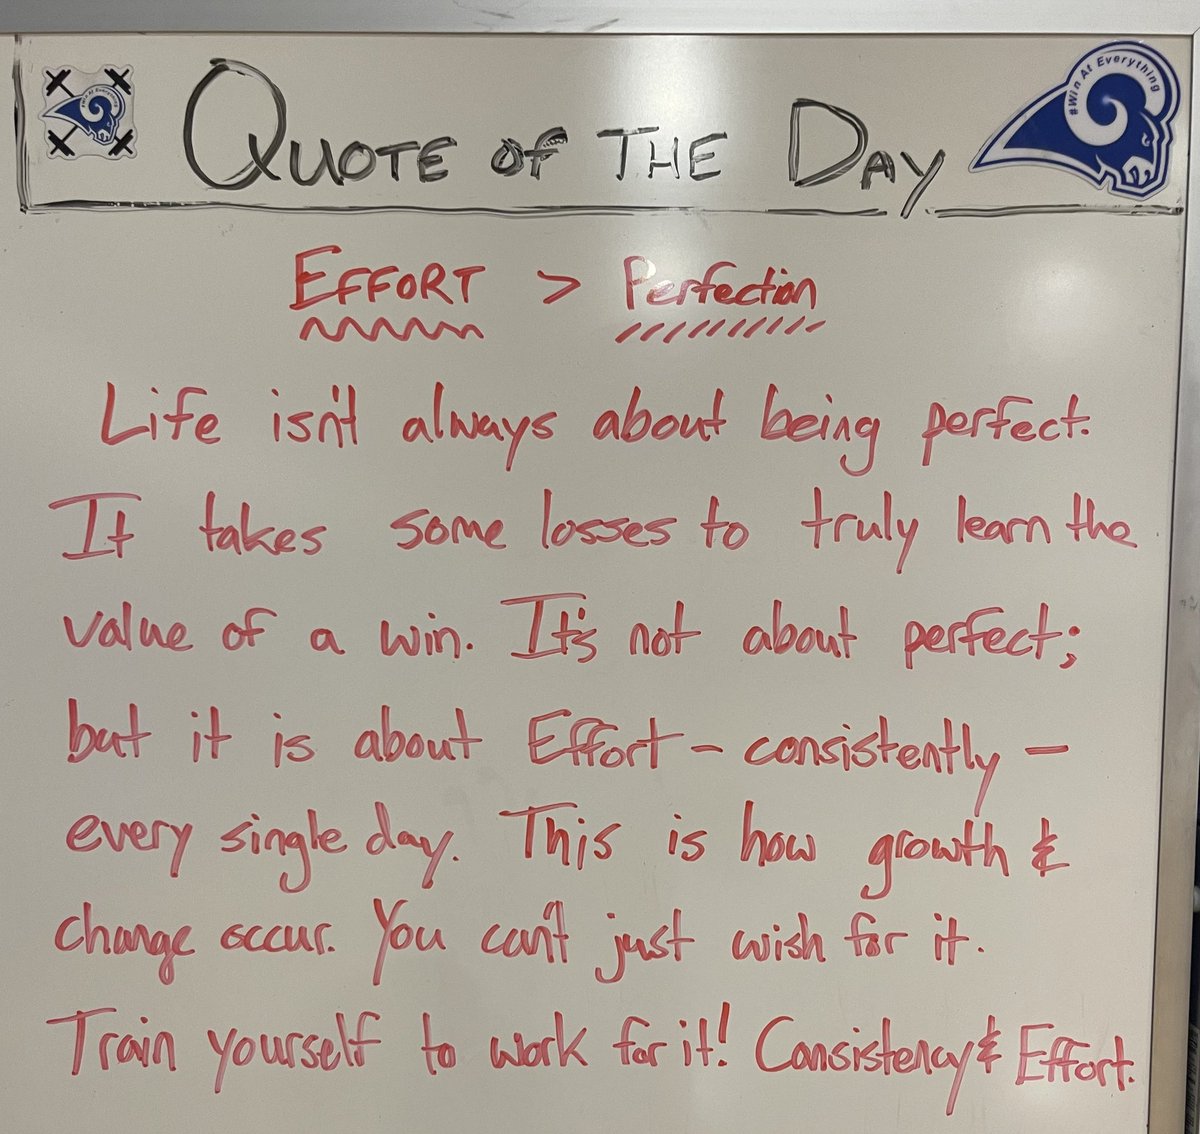 #Win At Everything
#Win At Everything
QUOTE OF THE DAY
EFFORT > Perfection
Life isn't always about being perfect.
It takes some losses to truly learn the
value of a win. It's not about perfect;
but it is about Effort - consistently -
every single day. This is how growth &
change occur. You can't just wish for it.
Train yourself to work for it! Consistency & Effort.